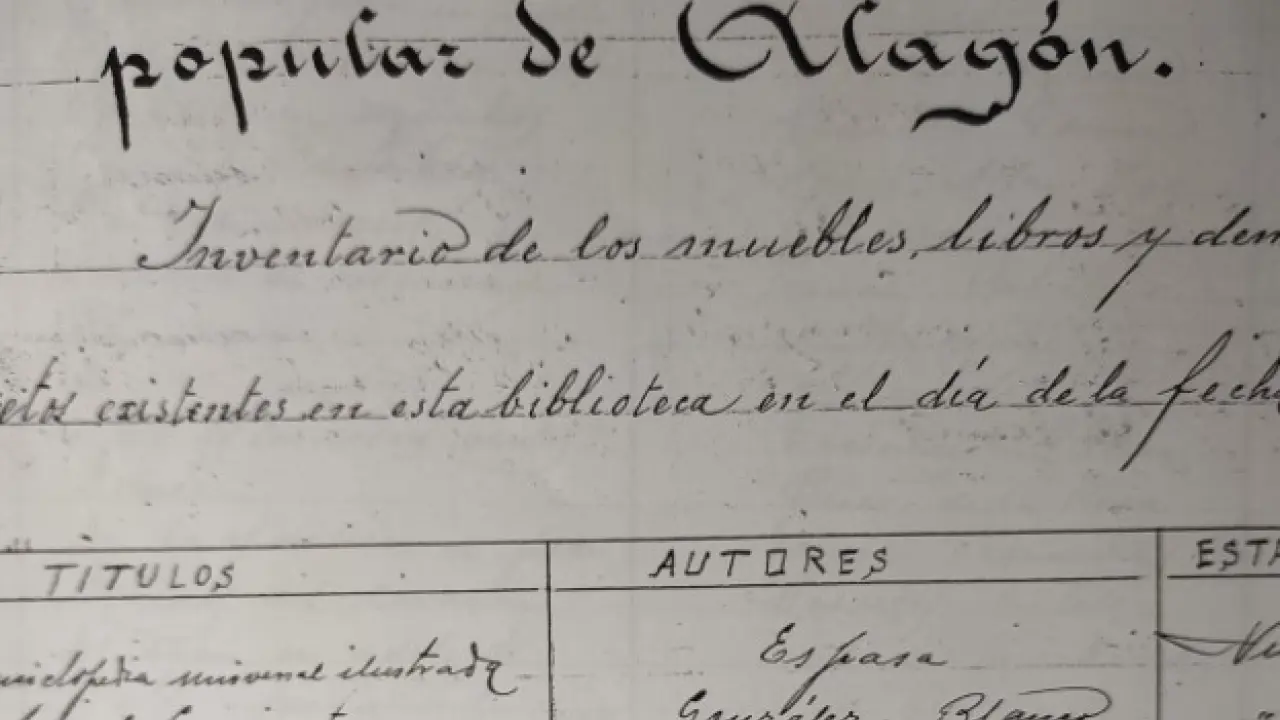 popular de Alagón.
Inventario de los muebles, libros y dem
etos existentes en esta biblioteca en el día de la fecha
TITULOS AUTORES ESTA
nciclopedia universal ilustrada Espasa
González Blanco